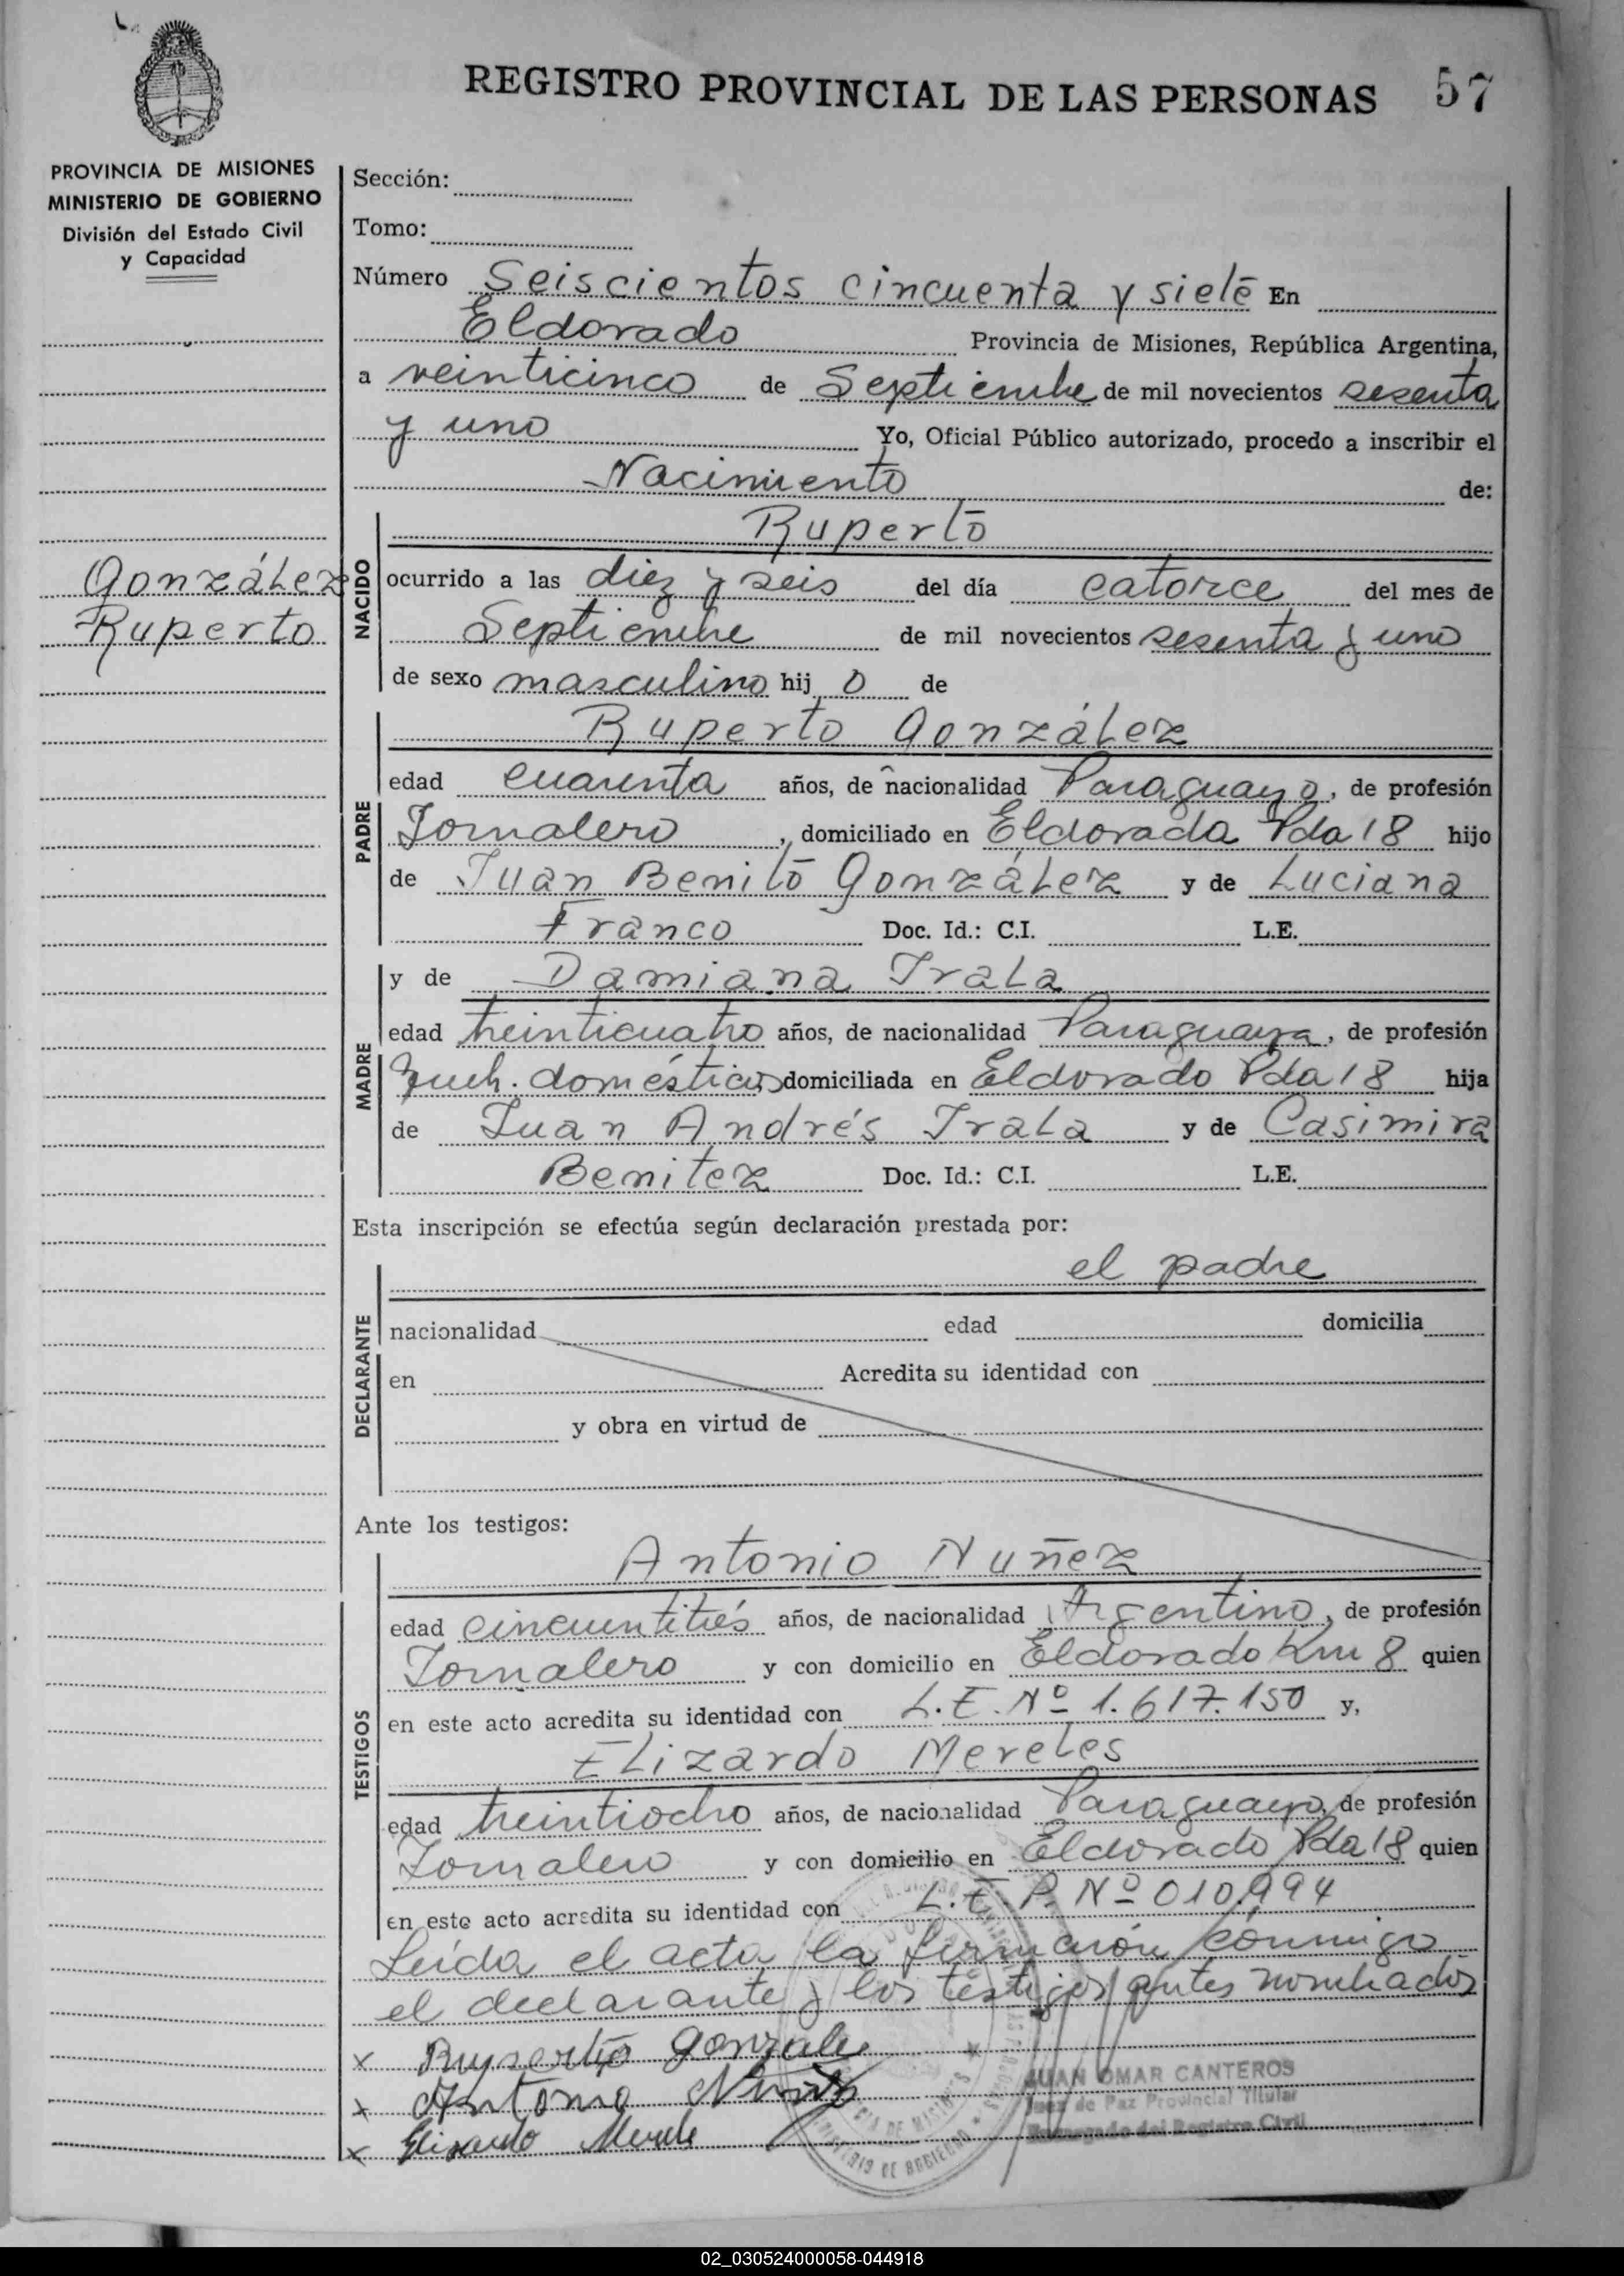 REGISTRO PROVINCIAL DE LAS PERSONAS 57
PROVINCIA DE MISIONES
MINISTERIO DE GOBIERNO
División del Estado Civil
y Capacidad
González
Ruperto
Sección:
Tomo:
Número Seiscientos cincuenta y siete En
Eldorado Provincia de Misiones, República Argentina,
a veinticinco de Septiembre de mil novecientos sesenta
y uno Yo, Oficial Público autorizado, procedo a inscribir el
Nacimiento de:
NACIDO
Ruperto
ocurrido a las diez y seis del día catorce del mes de
Septiembre de mil novecientos sesenta y uno
de sexo masculino hij o de
PADRE
Ruperto González
edad cuarenta años, de nacionalidad Paraguayo, de profesión
Jornalero, domiciliado en Eldorado Pda 18 hijo
de Juan Benito González y de Luciana
Franco Doc. Id.: C.I. L.E.
MADRE
y de Damiana Irala
edad treinticuatro años, de nacionalidad Paraguaya, de profesión
domésticos domiciliada en Eldorado Pda 18 hija
de Juan Andrés Irala y de Casimira
Benitez Doc. Id.: C.I. L.E.
Esta inscripción se efectúa según declaración prestada por:
DECLARANTE
el padre
nacionalidad edad domicilia
en Acredita su identidad con
y obra en virtud de
Ante los testigos:
TESTIGOS
Antonio Nuñez
edad cincuentitrés años, de nacionalidad Argentino, de profesión
Jornalero y con domicilio en Eldorado Km 8 quien
en este acto acredita su identidad con L.E. Nº 1.617.150 y,
Elizardo Mereles
edad treintiocho años, de nacionalidad Paraguayo, de profesión
Jornalero y con domicilio en Eldorado Pda 18 quien
en este acto acredita su identidad con L.E.P. Nº 010.994
Leída el acta la firmaron conmigo
el declarante y los testigos antes nombrados
x Ruperto Gonzale
x Antonio Nuñez
x Elizardo Merele
JUAN OMAR CANTEROS
Juez de Paz Provincial Titular
Encargado del Registro Civil
MINISTERIO DE GOBIERNO
02_030524000058-044918